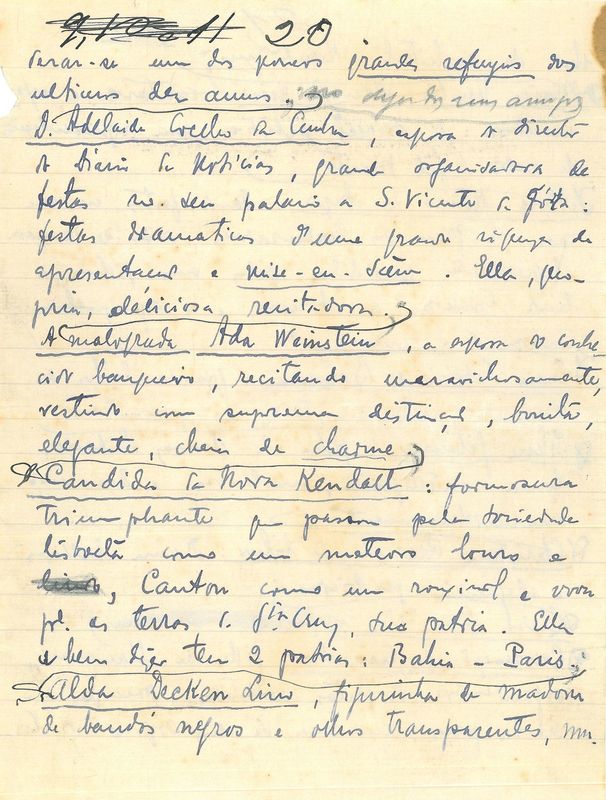 9, 10 e 11 20
derar-se um dos poucos grandes refugios dos
ultimos dez annos.
D. Adelaide Coelho da Cunha, esposa do director
do Diario de Noticias, grande organisadora de
festas no seu palacio a S. Vicente de Fóra:
festas dramaticas d'uma grande riqueza de
apresentação e mise-en-scène. Ella, pro-
pria, deliciosa recitadora.
A malograda Ada Weinstein, a esposa do conhe-
cido banqueiro, recitando maravilhosamente,
vestindo com suprema distinção, bonita,
elegante, cheia de charme.
Candida da Nova Kendall: formosura
triumphante que passou pela sociedade
lisboeta como um meteoro louro e
lindo, Cantou como um rouxinol e voou
pª. as terras de Stª Cruz, sua patria. Ella
a bem dizer tem 2 patrias: Bahia - Paris.
Alda Decken Lino, figurinha de madona
de bandós negros e olhos transparentes,